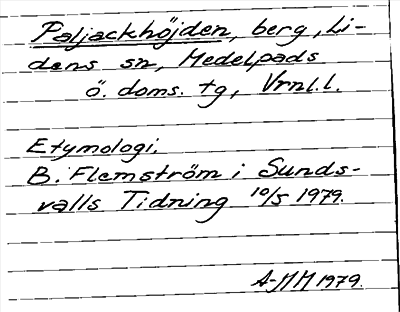 Paljackhöjden, berg, Li-
dens sn, Medelpads
ö. doms. tg, Vrnl.l.
Etymologi.
B. Flemström i Sunds-
valls Tidning 10/5 1979.
A-MM 1979.